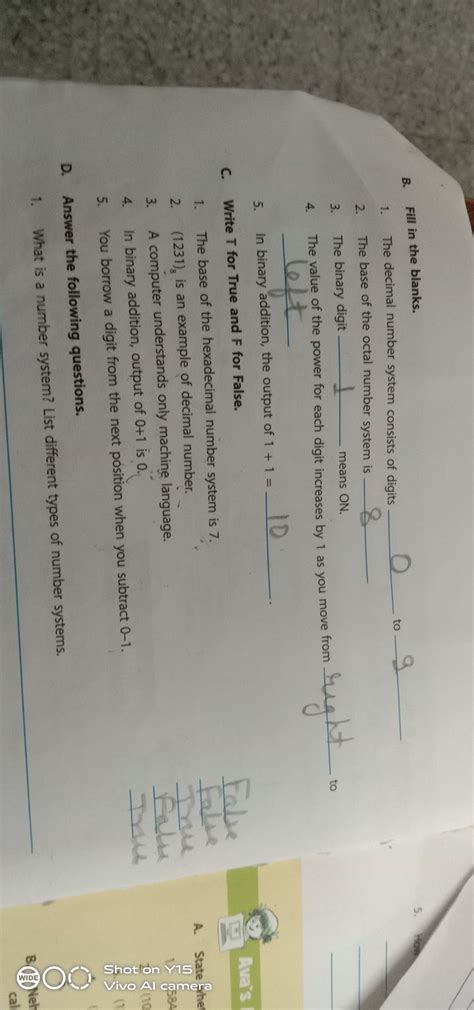 B. Fill in the blanks.
1. The decimal number system consists of digits 0 to 9
2. The base of the octal number system is 8
3. The binary digit 1 means ON.
4. The value of the power for each digit increases by 1 as you move from right to
left
5. In binary addition, the output of 1 + 1 = 10.
C. Write T for True and F for False.
1. The base of the hexadecimal number system is 7. False
2. (1231)₈ is an example of decimal number. False
3. A computer understands only machine language. True
4. In binary addition, output of 0+1 is 0. False
5. You borrow a digit from the next position when you subtract 0–1. True
D. Answer the following questions.
1. What is a number system? List different types of number systems.
5. How
Ava's
A. State
584
(10
(1
B.
cal
Shot on Y15
Vivo AI camera
WIDE